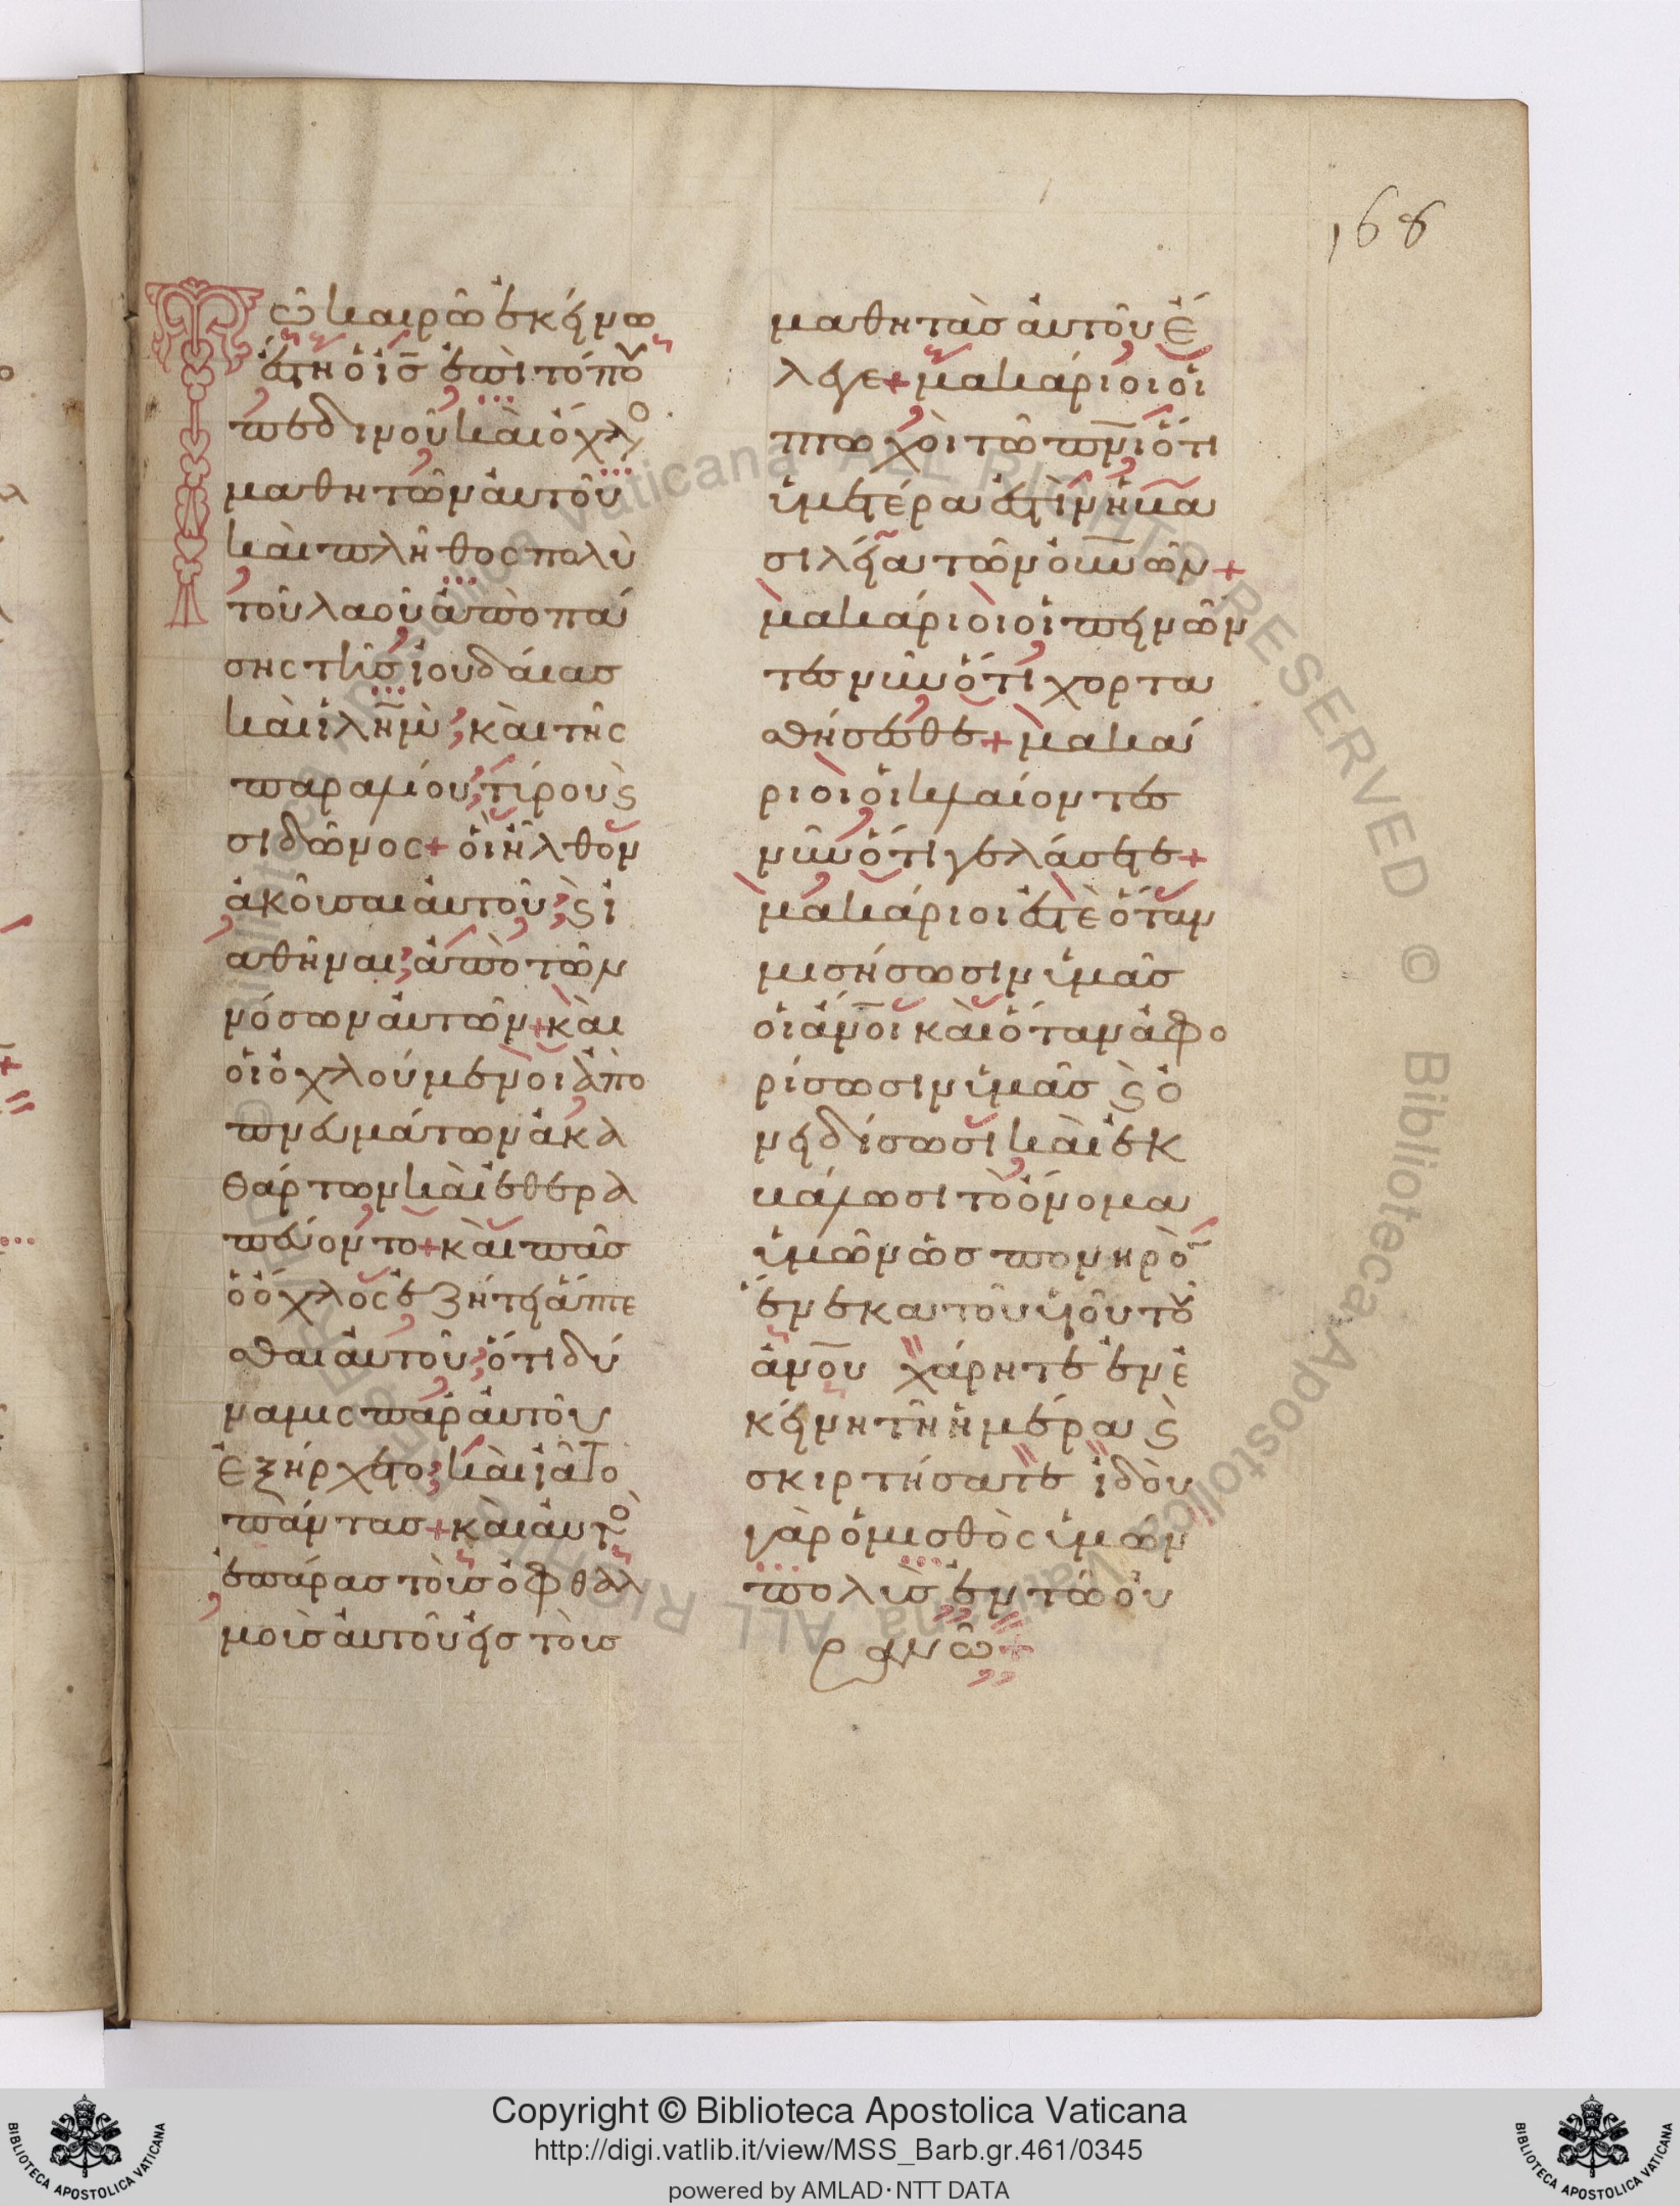 168
Τῶ καιρῶ ἐκείνω
ἔστη ὁ ἰς ἐπὶ τόπου
πεδινοῦ καὶ ὄχλο
μαθητῶν αὐτοῦ
καὶ πλῆθος πολὺ
τοῦ λαοῦ ἀπὸ πά
σης τῆς ἰουδαίας
καὶ ἰλῆμ· καὶ τῆς
παραλίου τύρου ϗ
σιδῶνος + οἳ ἦλθον
ἀκοῦσαι αὐτοῦ ϗ ἰ
αθῆναι ἀπὸ τῶν
νόσων αὐτῶν + καὶ
οἱ ὀχλούμενοι ἀπὸ
πνευμάτων ἀκα
θάρτων καὶ ἐθερα
πεύοντο + καὶ πᾶς
ὁ ὄχλος ἐζήτει ἅπτε
σθαι αὐτοῦ ὅτι δύ
ναμις παρ αὐτοῦ
ἐξήρχετο καὶ ἰᾶτο
πάντας + καὶ αὐτὸ
ἐπάρας τοὺς ὀφθαλ
μοὺς αὐτοῦ εἰς τοὺς
μαθητὰς αὐτοῦ ἔ
λεγε + μακάριοι οἱ
πτωχοὶ τῶ πνι ὅτι
ὑμετέρα ἐστὶν ἡ βα
σιλεία τῶν οὐνῶν +
μακάριοι οἱ πεινῶν
τες νῦν ὅτι χορτα
σθήσεσθε + μακά
ριοι οἱ κλαίοντες
νῦν ὅτι γελάσετε +
μακάριοι ἐστὲ ὅταν
μισήσωσιν ὑμᾶς
οἱ ἄνοι καὶ ὅταν ἀφο
ρίσωσιν ὑμᾶς ϗ ὀ
νειδίσωσι καὶ ἐκ
βάλωσι τὸ ὄνομα
ὑμῶν ὡς πονηρὸ
ἕνεκα τοῦ υἱοῦ τοῦ
ἀνου χάρητε ἐν ἐ
κείνη τῆ ἡμέρα ϗ
σκιρτήσατε ἰδοὺ
γὰρ ὁ μισθὸς ὑμῶν
πολὺς ἐν τῶ οὐ
ρανῶ +
Copyright © Biblioteca Apostolica Vaticana
http://digi.vatlib.it/view/MSS_Barb.gr.461/0345
powered by AMLAD·NTT DATA
BIBLIOTECA APOSTOLICA VATICANA
BIBLIOTECA APOSTOLICA VATICANA